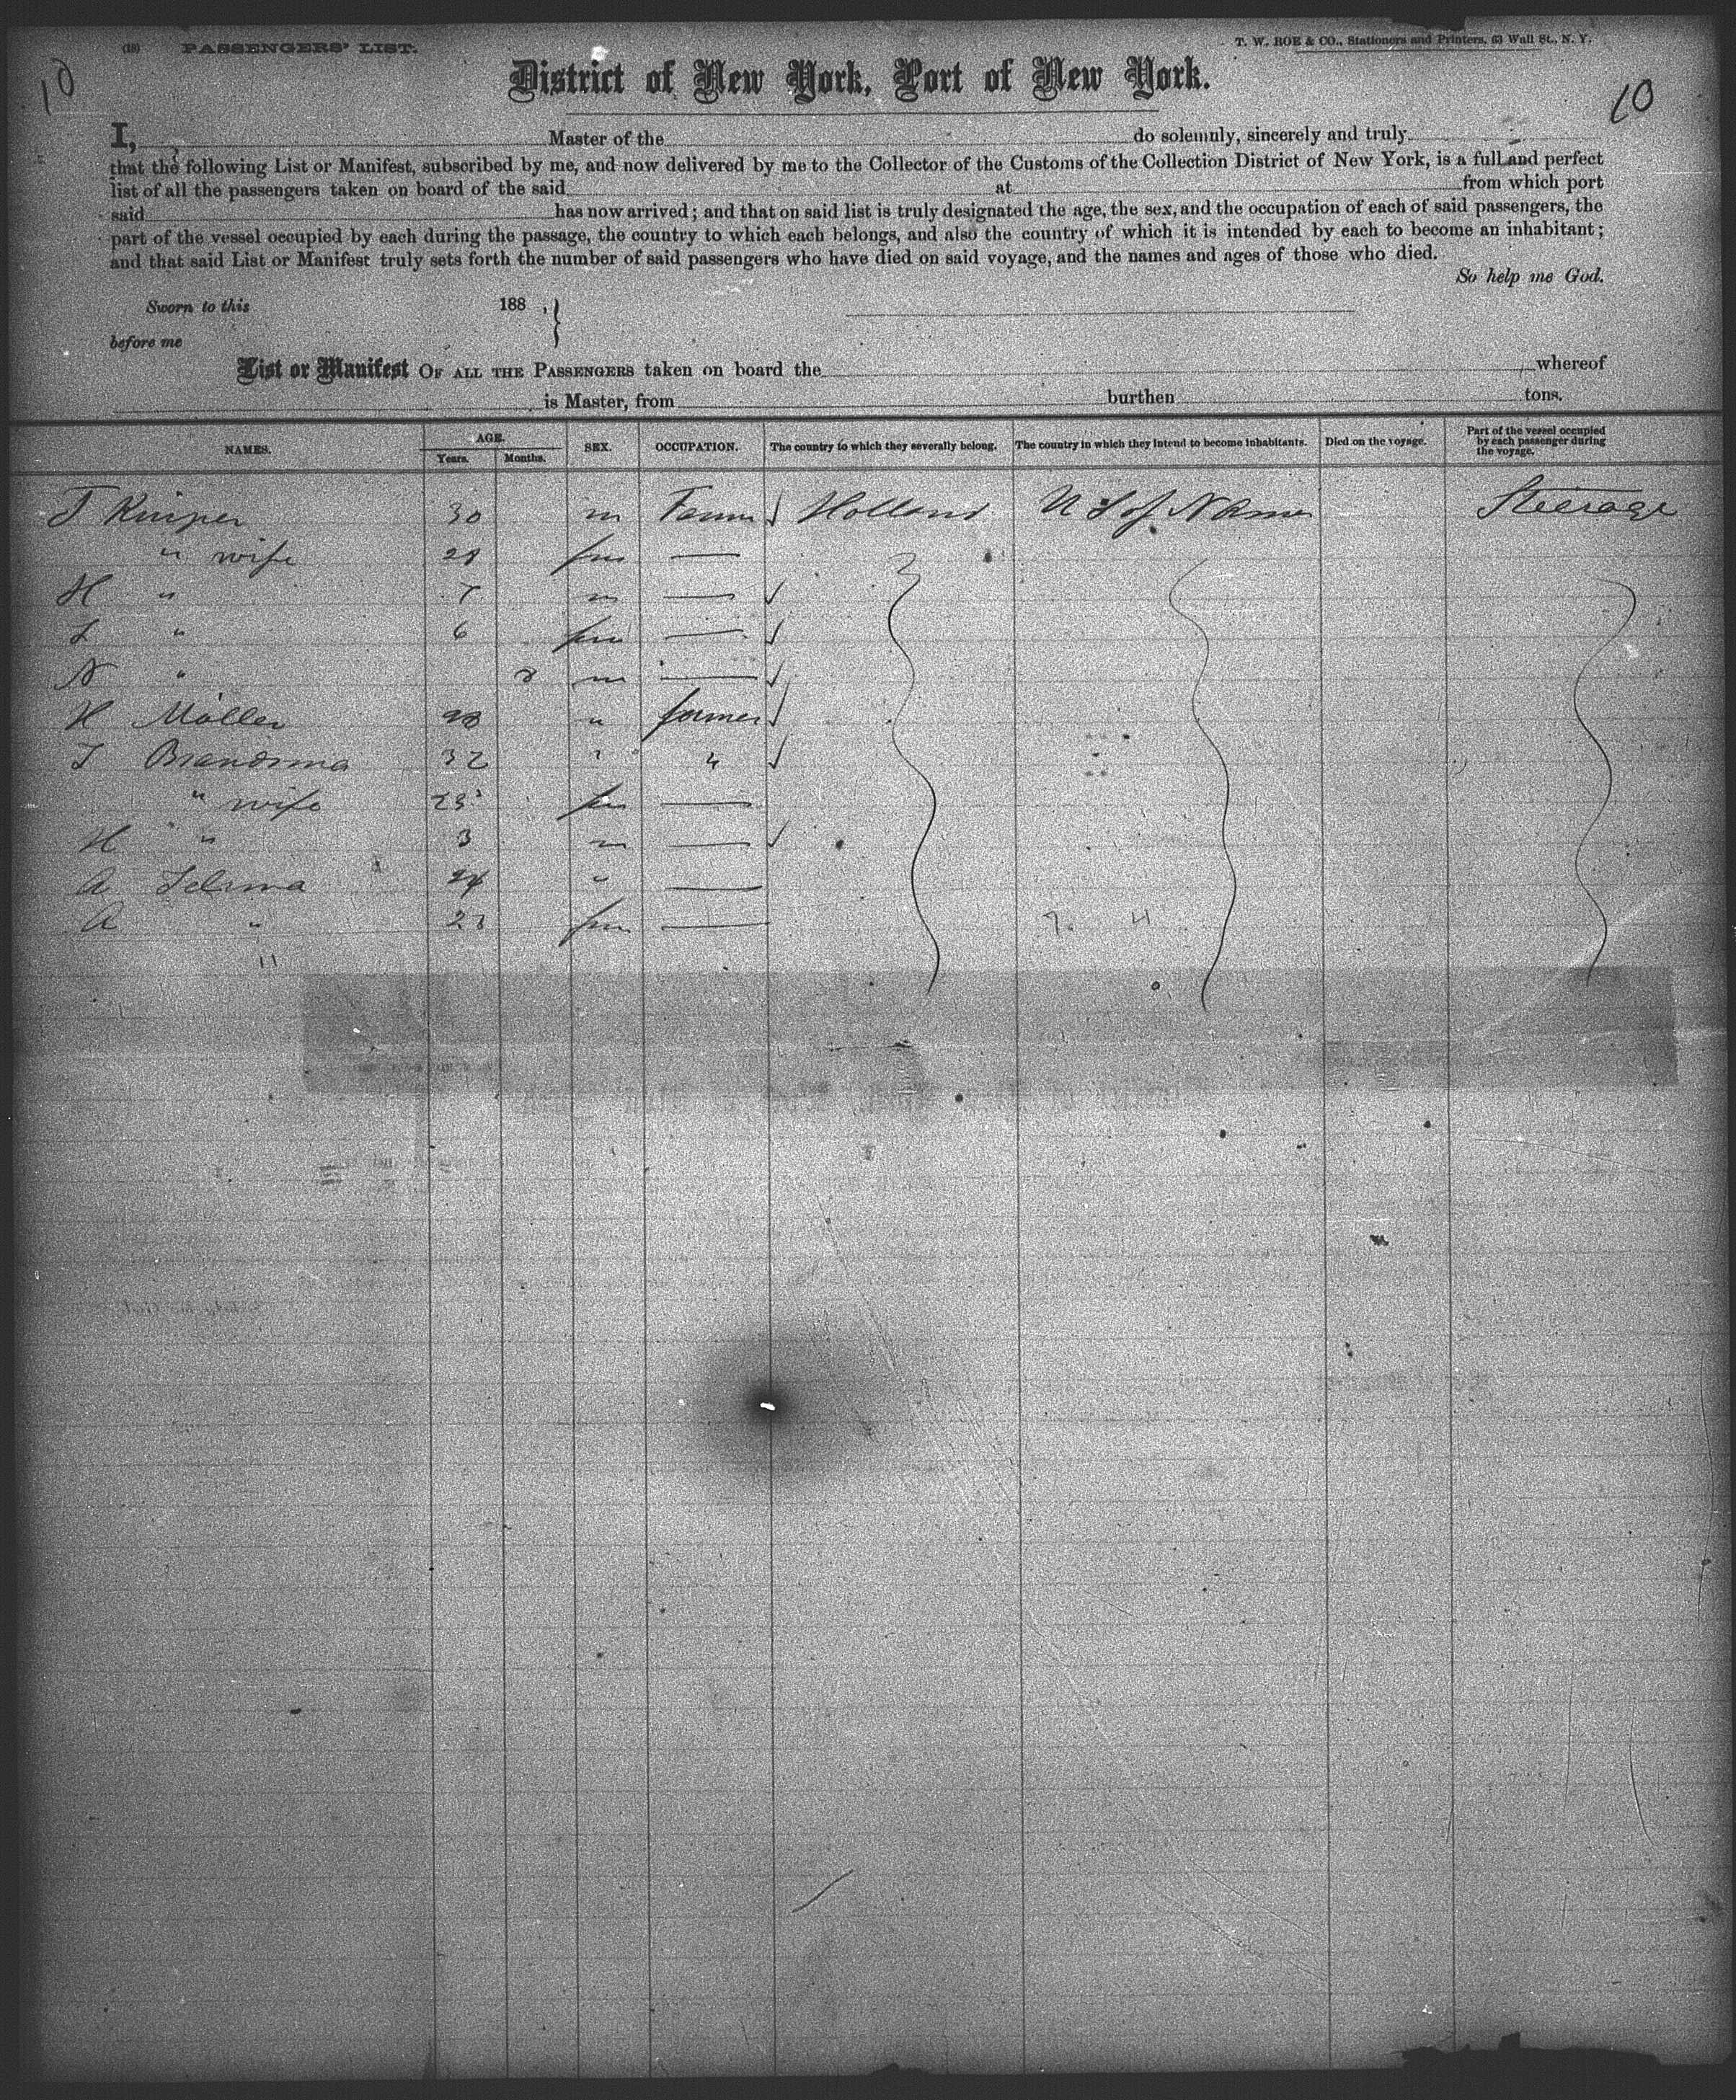 (18) PASSENGERS' LIST.
T. W. ROE & CO., Stationers and Printers, 63 Wall St., N. Y.
10
10
District of New York, Port of New York.
I, Master of the do solemnly, sincerely and truly
that the following List or Manifest, subscribed by me, and now delivered by me to the Collector of the Customs of the Collection District of New York, is a full and perfect
list of all the passengers taken on board of the said at from which port
said has now arrived; and that on said list is truly designated the age, the sex, and the occupation of each of said passengers, the
part of the vessel occupied by each during the passage, the country to which each belongs, and also the country of which it is intended by each to become an inhabitant;
and that said List or Manifest truly sets forth the number of said passengers who have died on said voyage, and the names and ages of those who died.
So help me God.
Sworn to this 188 , }
before me
List or Manifest OF ALL THE PASSENGERS taken on board the whereof
is Master, from burthen tons.
NAMES. AGE. Years. Months. SEX. OCCUPATION. The country to which they severally belong. The country in which they intend to become inhabitants. Died on the voyage. Part of the vessel occupied by each passenger during the voyage.
Kuiper 30 m Farmer ✓ Holland U S of N Amer Steerage
" wife fm —
H " 7 m — ✓
L " 6 fm — ✓
N " m — ✓
H Möller " farmer ✓
Brandsma 32 " " ✓
" wife fm —
H " 3 m — ✓
A " —
A " fm —
11